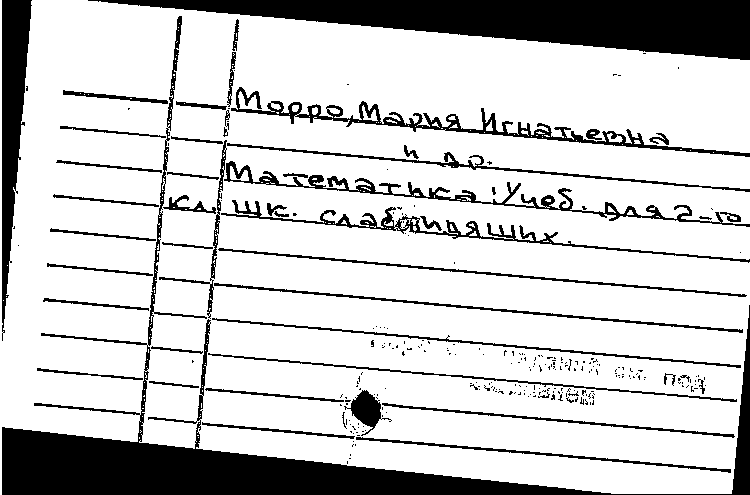 Морро, Мария Игнатьевна
и др.
Математика: Учеб. для 2-го
кл. шк. слабовидящих.
изданий см. под